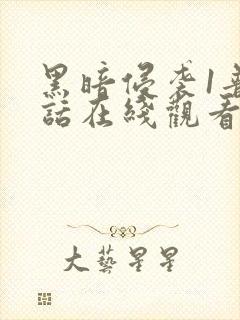 黑暗侵袭1普
話在綫觀看
大藝星星